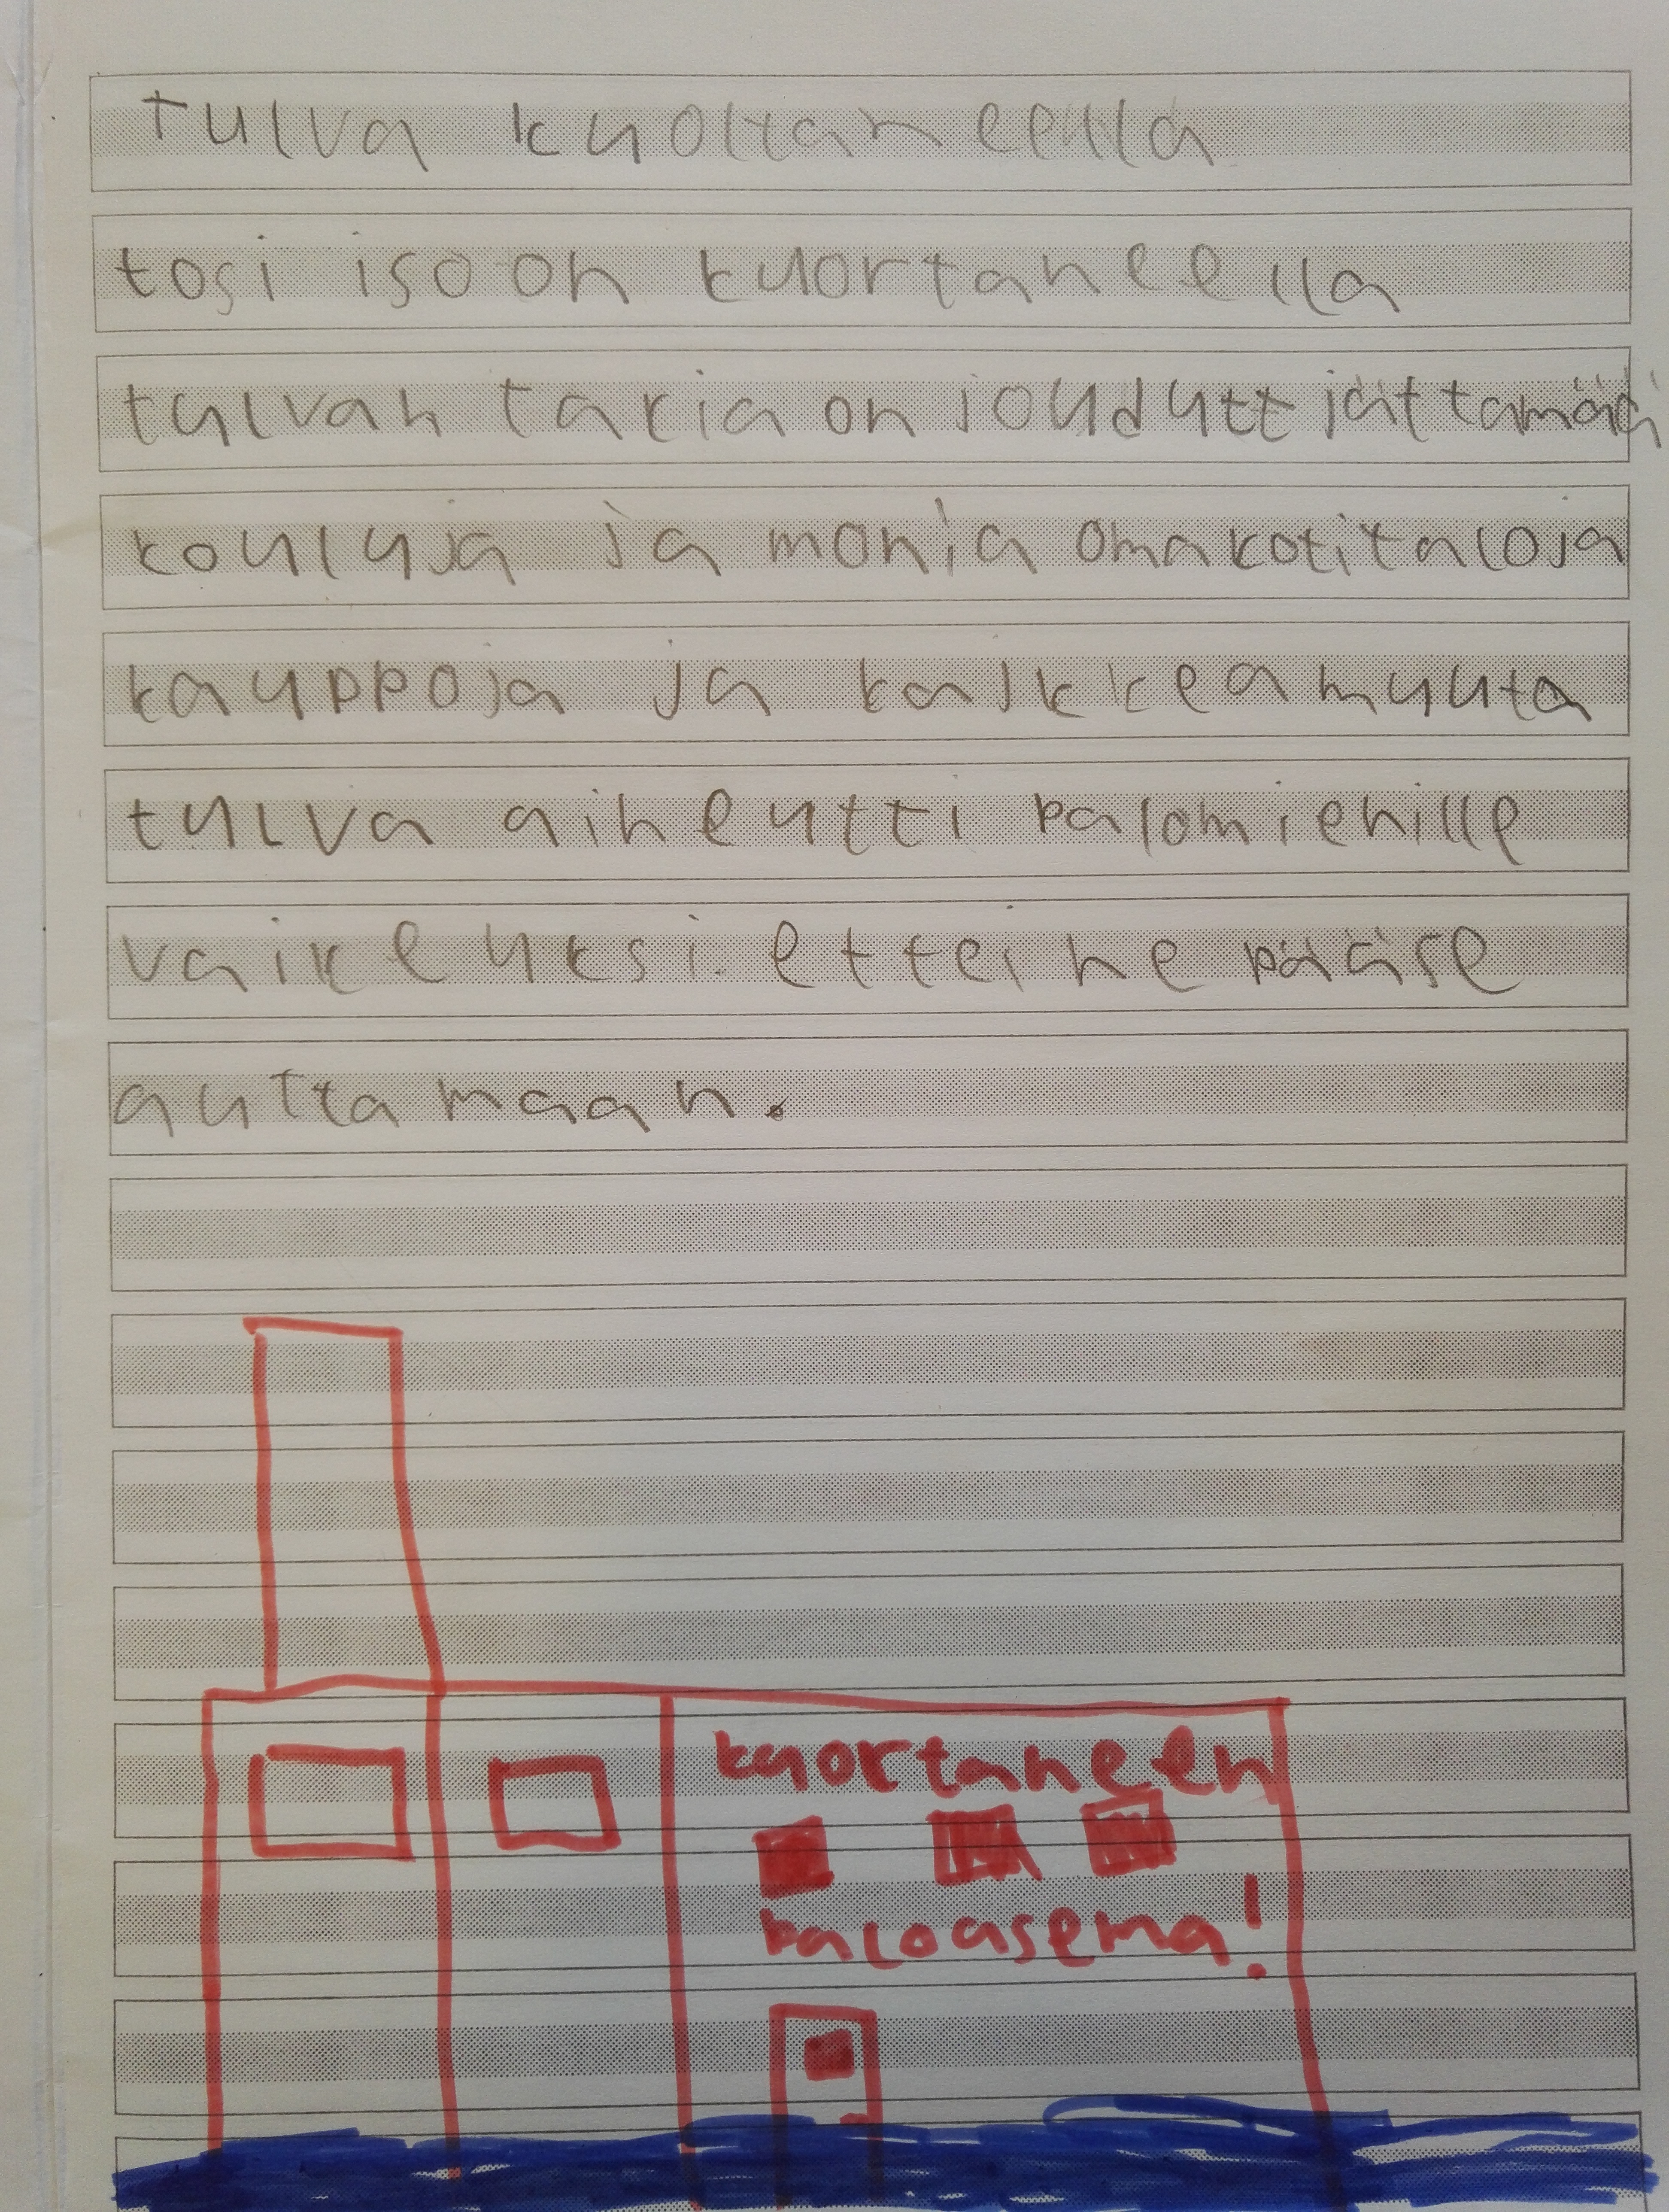 tulva kuortaneella
tosi iso on kuortaneella
tulvan takia on joudutt jättämään
kouluja ja monia omakotitaloja
kauppoja ja kaikkea muuta
tulva aiheutti palomiehille
vaikeuksi. ettei he pääse
auttamaan.
kuortaneen
paloasema!